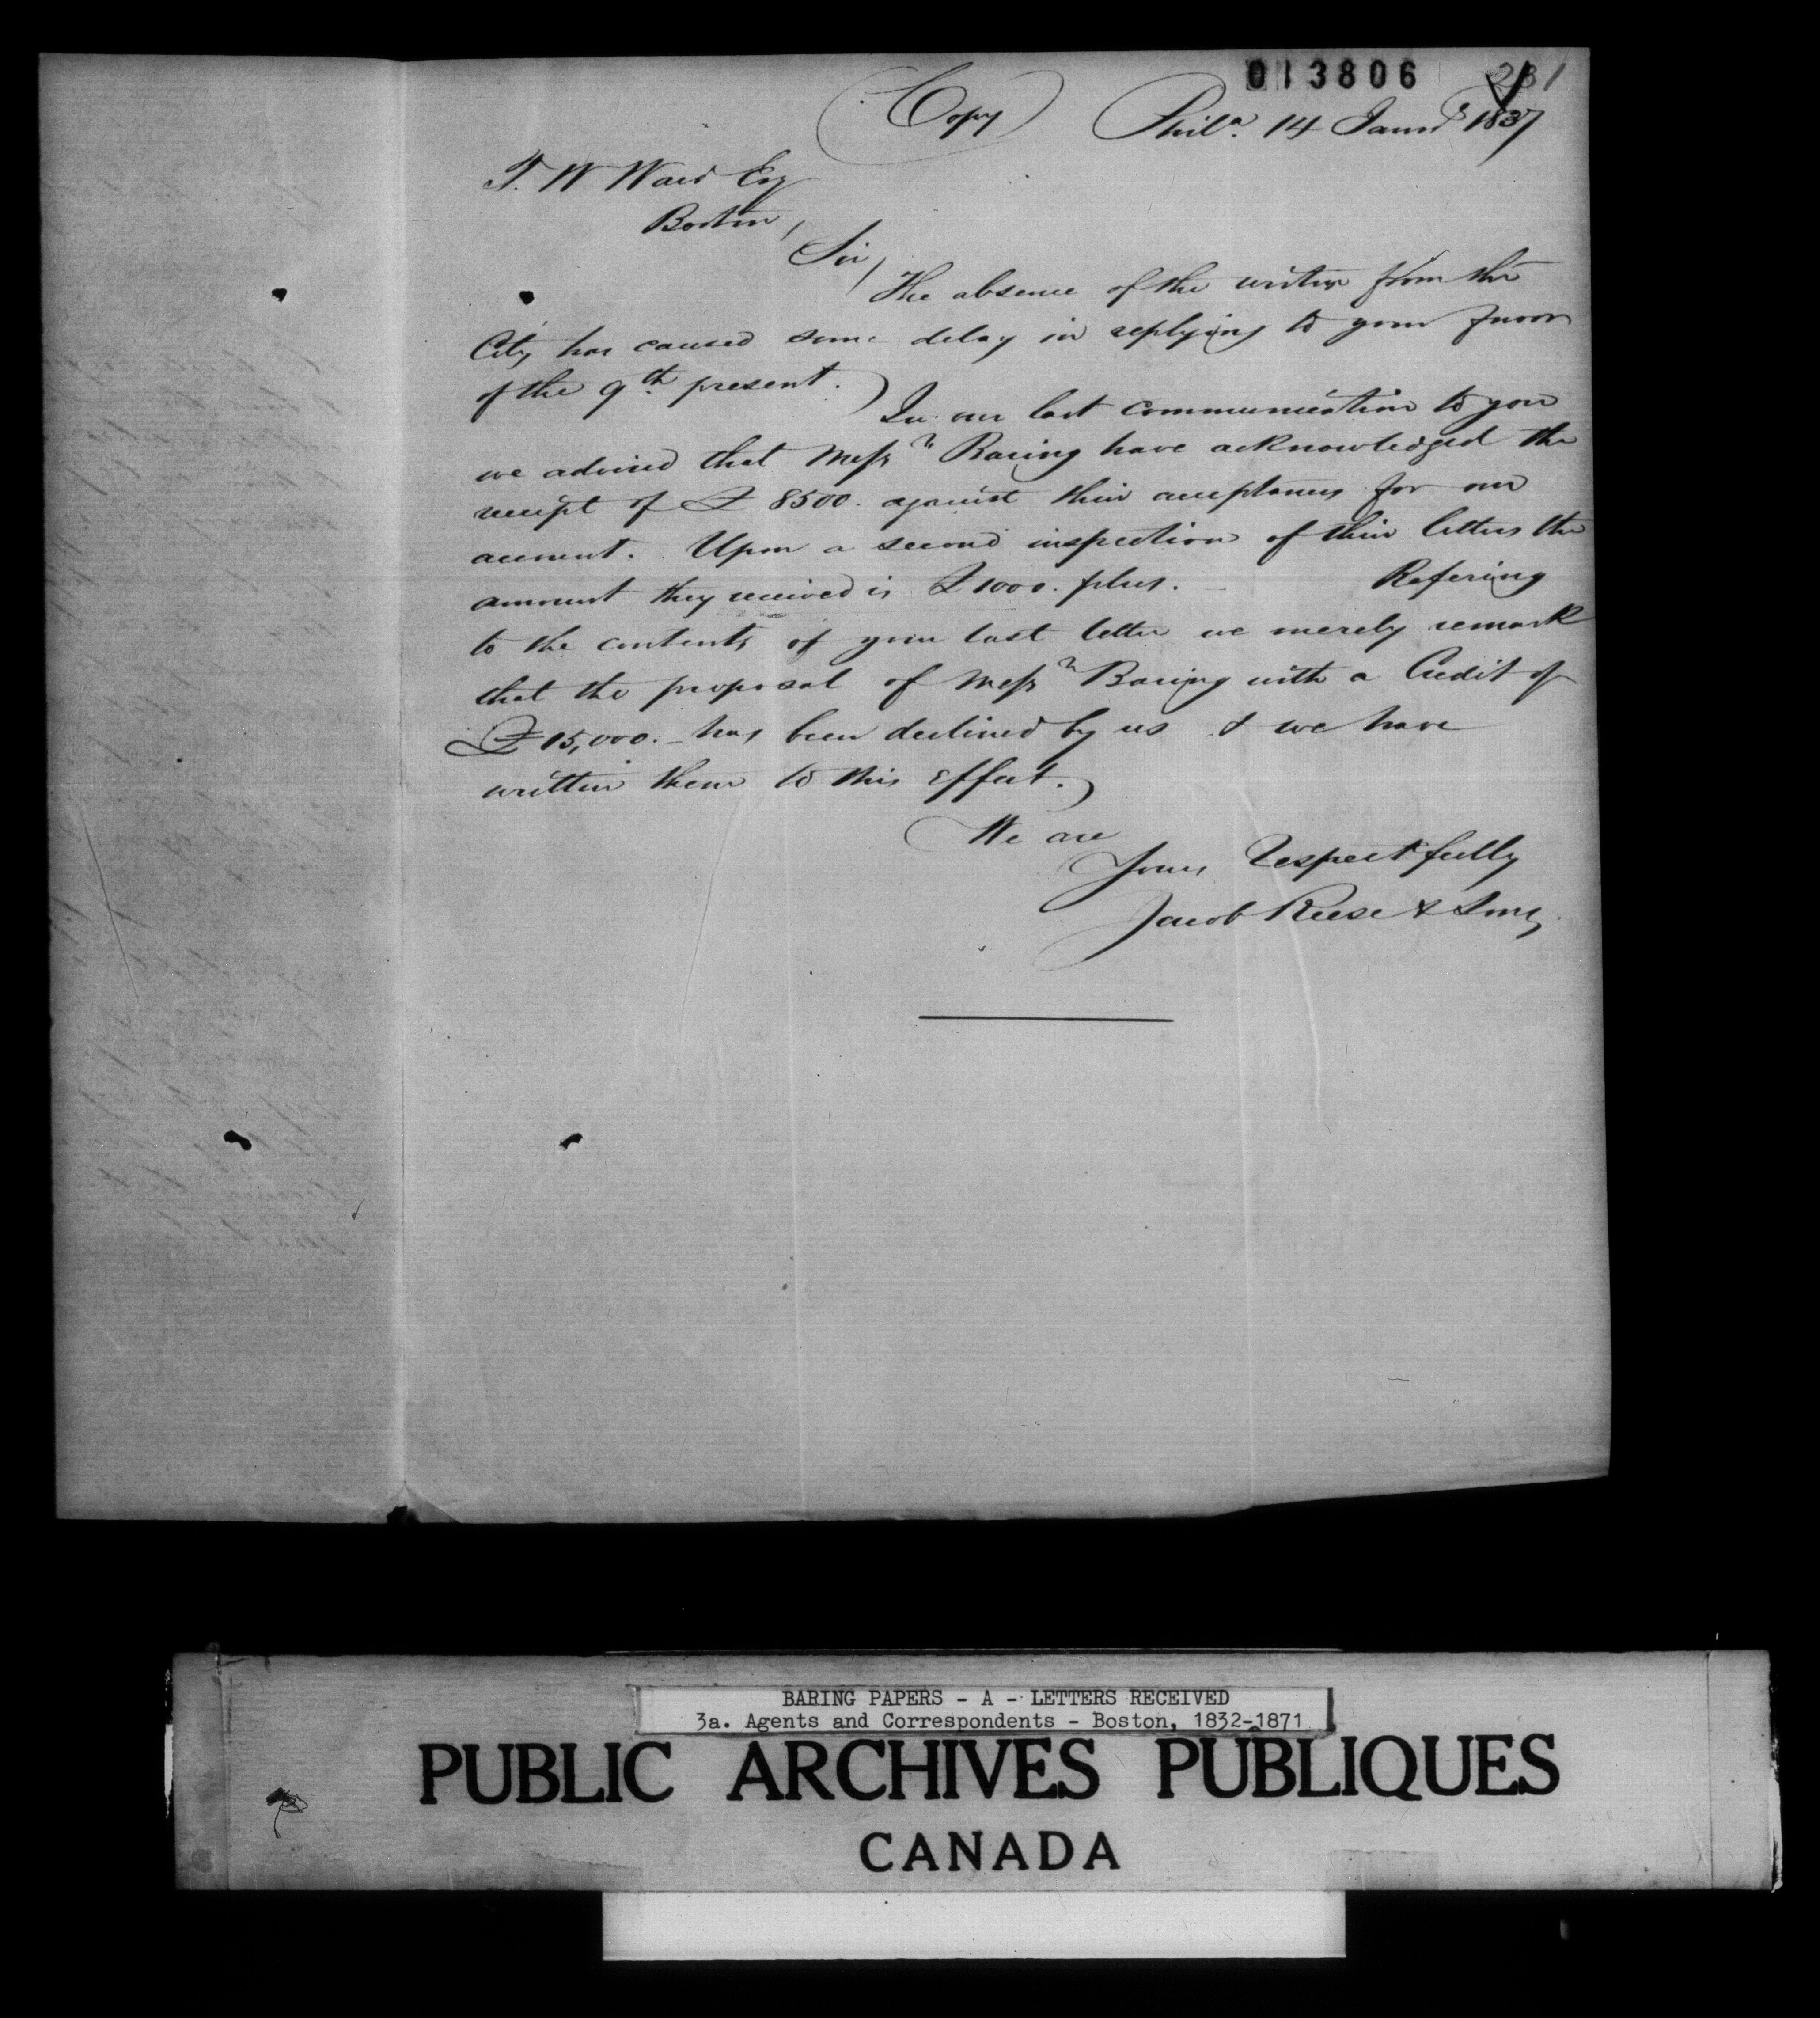 013806 231
(Copy) Phila. 14 Janry 1837
T. W Ward Esq
Boston,
Sir,
The absence of the writer from the
City has caused some delay in replying to your favor
of the 9th present.
In our last communication to you
we advised that Messrs Baring have acknowledged the
receipt of £ 8500. against their acceptances for our
account. Upon a second inspection of their letters the
amount they received is £1000. plus. — Refering
to the contents of your last letter we merely remark
that the proposal of Messrs Baring with a Credit of
£15,000. has been declined by us & we have
written them to this effect.
We are
Yours Respectfully
Jacob Reese & Sons
BARING PAPERS - A - LETTERS RECEIVED
3a. Agents and Correspondents - Boston, 1832-1871
PUBLIC ARCHIVES PUBLIQUES
CANADA